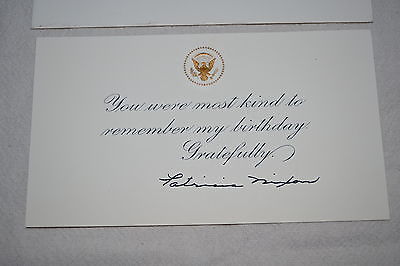 You were most kind to
remember my birthday.
Gratefully,
Patricia Nixon